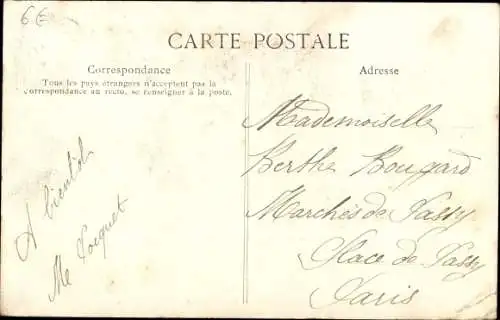 6€
CARTE POSTALE
Correspondance
Tous les pays étrangers n'acceptent pas la
correspondance au recto, se renseigner à la poste.
A bientôt
Me
Adresse
Mademoiselle
Berthe Bougard
Marchés de Passy
Place de Passy
Paris